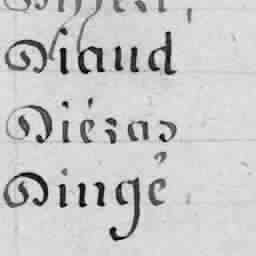 Diaud
Diézas
Dingé